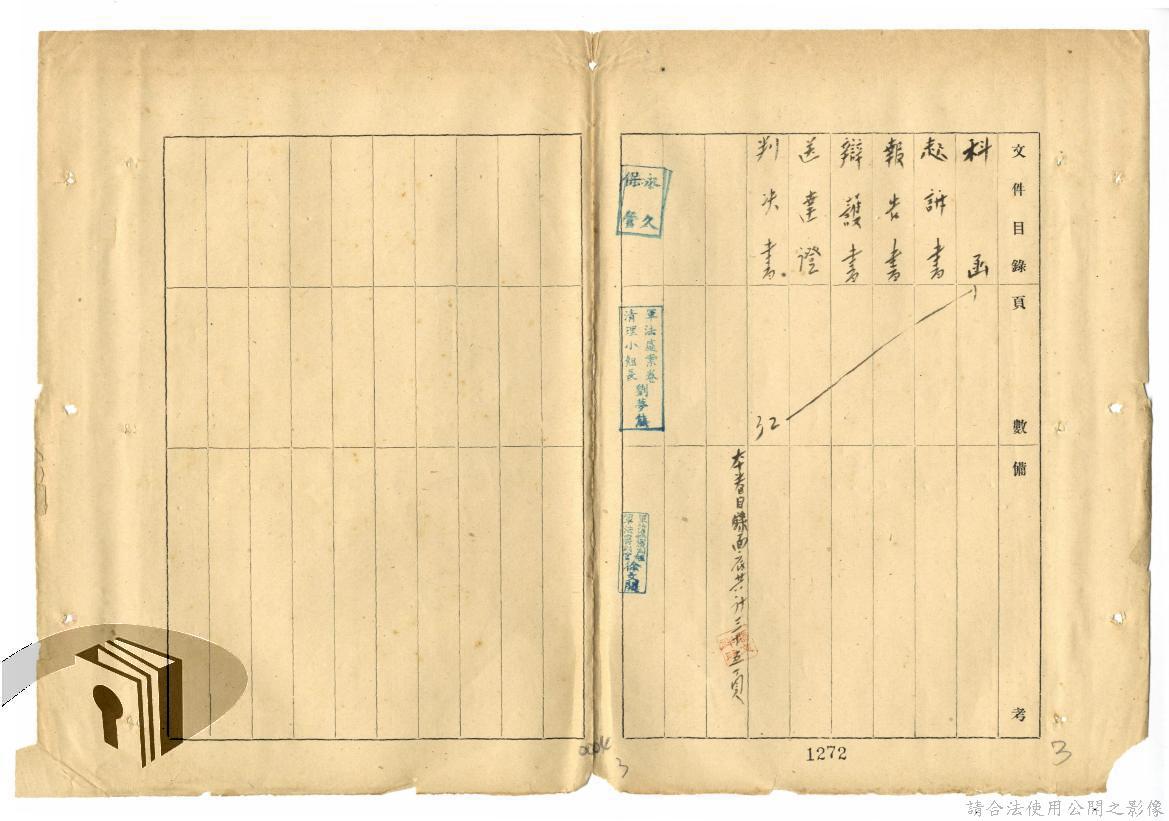 文件目錄
頁數
備考
科函
起訴書
報告書
辯護書
送達證
判決書。
32
本卷目錄面底共計三十五頁
永久
保管
軍法處案卷
清理小組長
劉夢
徐文
1272
3
3
請合法使用公開之影像